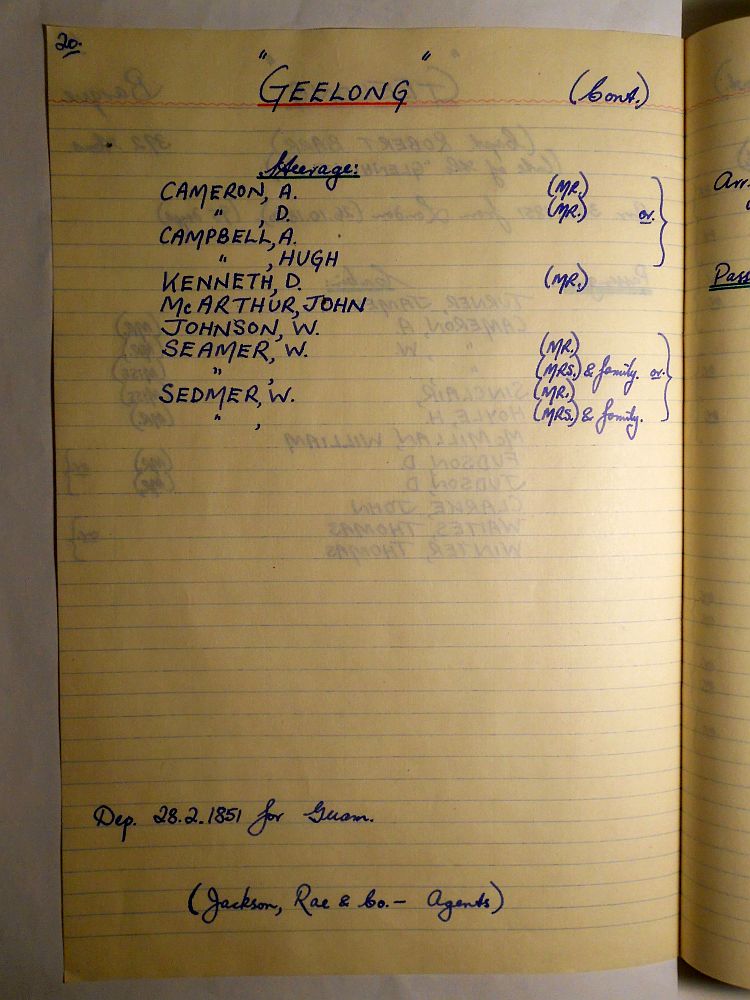 20.
"GEELONG" (Cont.)
Steerage:
CAMERON, A. (MR.)
" , D. (MR.) or.
CAMPBELL, A.
" , HUGH
KENNETH, D. (MR.)
McARTHUR, JOHN
JOHNSON, W.
SEAMER, W. (MR.)
" , (MRS.) & family. or.
SEDMER, W. (MR.)
" , (MRS.) & family.
Dep. 28.2.1851 for Guam.
(Jackson, Rae & Co. - Agents)
Arr.
Pass